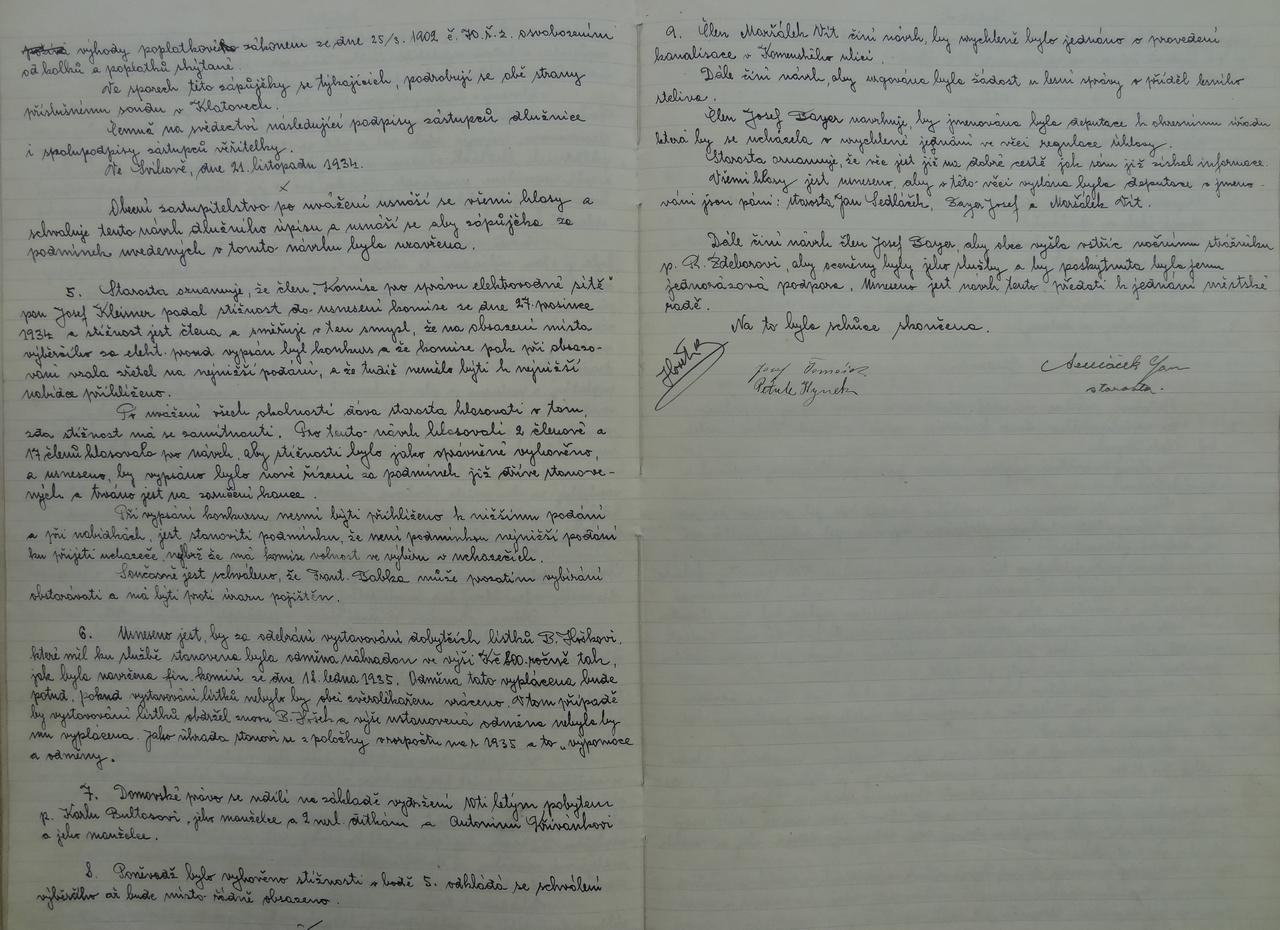 výhody poplatkové zákonem ze dne 25/3. 1902 č. 70. ř. z. osvobozením
od kolků a poplatků skýtané.
Ve sporech této zápůjčky se týkajících, podrobují se obě strany
příslušnému soudu v Klatovech.
Čemuž na svědectví následující podpisy zástupců dlužnice
i spolupodpisy zástupců věřitelky.
Ve Svihově, dne 21. listopadu 1934.
x
Obecní zastupitelstvo po uvážení usnáší se všemi hlasy a
schvaluje tento návrh dlužního úpisu a usnáší se aby zápůjčka za
podmínek uvedených v tomto návrhu byla uzavřena.
5. Starosta oznamuje, že člen "Komise pro správu elektrovodné sítě"
pan Josef Kleisner podal stížnost do usnesení komise ze dne 27. prosince
1934 a stížnost jest čtena a směřuje v ten smysl, že na obsazení místa
výběrčího za elekt. proud vypsán byl konkurs a že komise pak při obsazo-
vání vzala zřetel na nejnižší podání, a že tudíž nemělo býti k nejnižší
nabídce přihlíženo.
Po uvážení všech okolností dává starosta hlasovati o tom,
zda stížnost má se zamítnouti. Pro tento návrh hlasovali 2 členové a
17 členů hlasovalo pro návrh, aby stížnosti bylo jako oprávněné vyhověno,
a usneseno, by vypsáno bylo nové řízení za podmínek již dříve stanove-
ných a trváno jest na složení kauce.
Při vypsání konkursu nesmí býti přihlíženo k nižšímu podání
a při nabídkách, jest stanoviti podmínku, že není podmínkou nejnižší podání
ku přijetí uchazeče, nýbrž že má komise volnost ve výběru v uchazečích.
Současně jest schváleno, že Frant. Babka může prozatím vybírání
obstarávati a má býti proti úrazu pojištěn.
6. Usneseno jest, by za odebrání vystavování dobytčích lístků B. Hrčkovi,
které měl ku službě stanovena byla odměna náhradou ve výši Kč 800.- ročně tak,
jak byla navržena fin. komisí ze dne 18. ledna 1935. Odměna tato vyplácena bude
potud, pokud vystavování lístků nebylo by obci zvěrolékařem vráceno. V tom případě
by vystavování lístků obdržel znovu B. Hrček a výše ustanovená odměna nebyla by
mu vyplácena. Jako úhrada stanoví se z položky v rozpočtu na r. 1935 a to "výpomoce
a odměny.
7. Domovské právo se udílí na základě vydržení 10ti letým pobytem
p. Karlu Bultasovi, jeho manželce a 2 nezl. dítkám a Antonínu Křivánkovi
a jeho manželce.
8. Poněvadž bylo vyhověno stížnosti v bodě 5. odkládá se schválení
výběrčího až bude místo řádně obsazeno.
9. Člen Maršálek Vít činí návrh, by urychleně bylo jednáno o provedení
kanalisace v Komenského ulici.
Dále činí návrh, aby urgována byla žádost u lesní správy o příděl lesního
steliva.
Člen Josef Bayer navrhuje, by jmenována byla deputace k okresnímu úřadu
která by se ucházela o urychlené jednání ve věci regulace Úhlavy.
Starosta oznamuje, že vše jest již na dobré cestě jak sám již získal informace.
Všemi hlasy jest usneseno, aby v této věci vyslána byla deputace a jmeno-
váni jsou páni: starosta Jan Sedláček, Bayer Josef a Maršálek Vít.
Dále činí návrh člen Josef Bayer, aby obec vyšla vstříc nočnímu strážníku
p. R. Zdeborovi, aby oceněny byly jeho služby a by poskytnuta byla jemu
jednorázová podpora. Usneseno jest návrh tento předati k jednání městské
radě.
Na to byla schůze skončena.
Josef Tomášek
Petrule Hynek
Sedláček Jan
starosta.